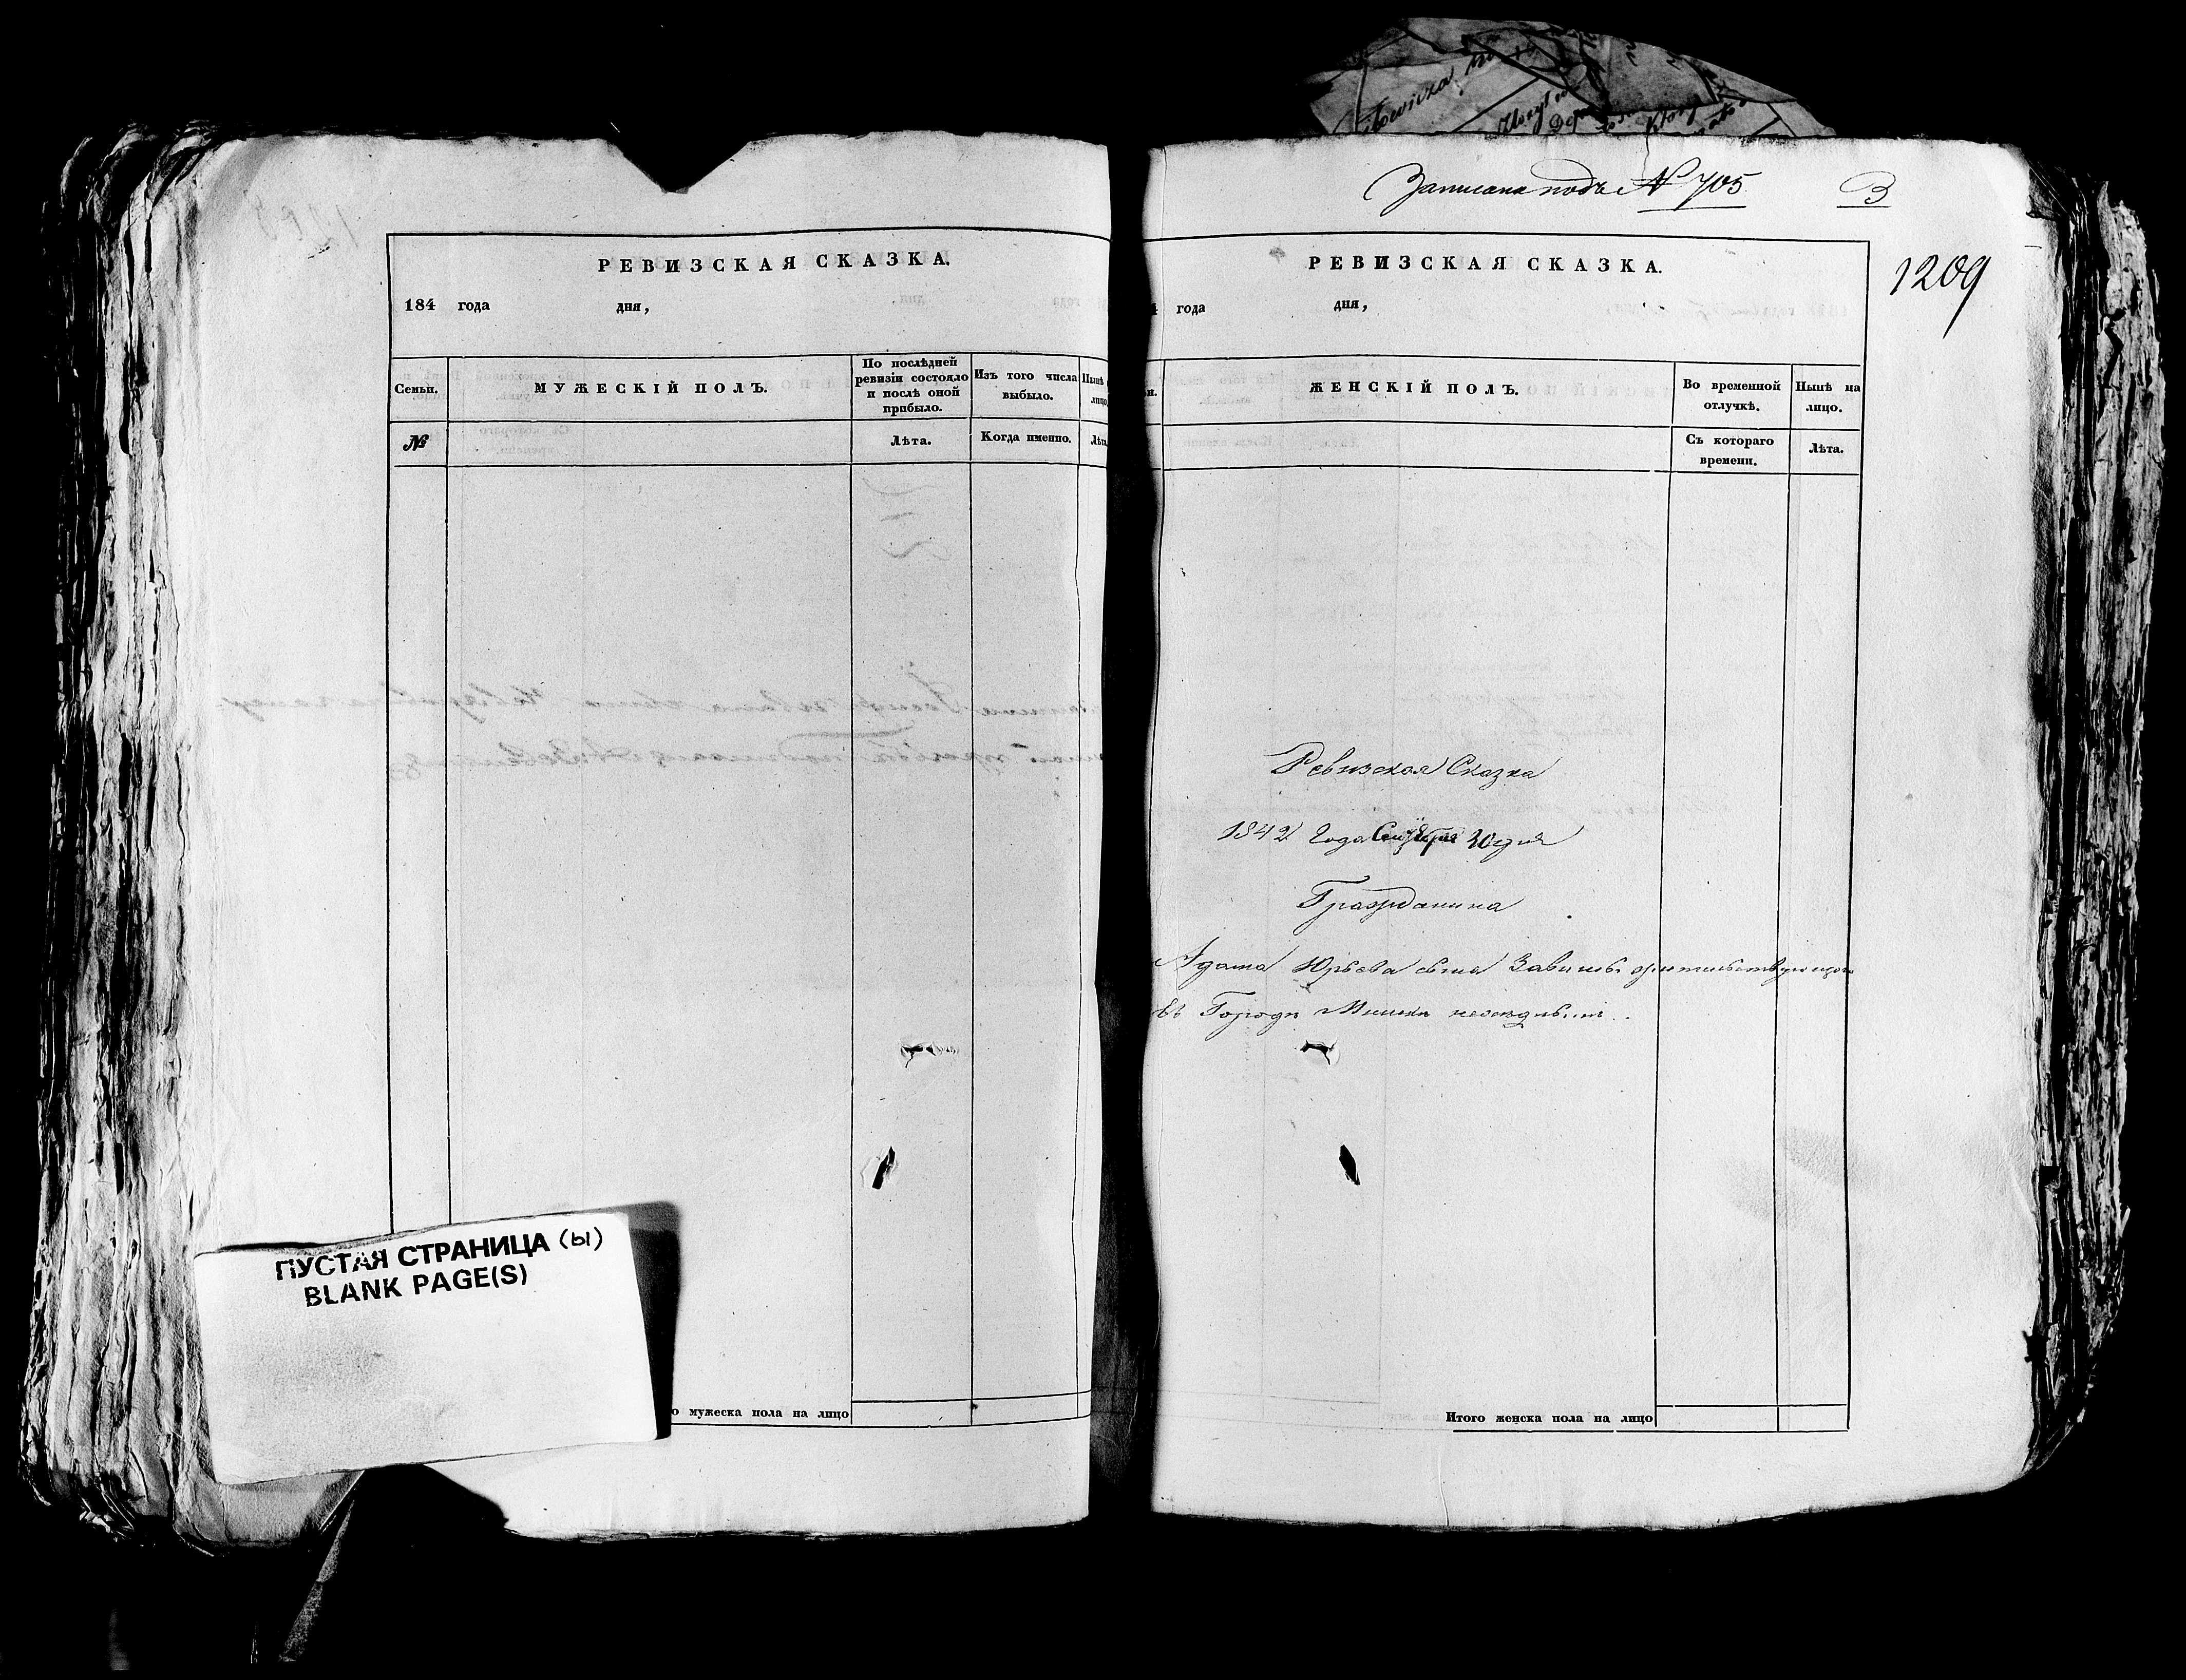 РЕВИЗСКАЯ СКАЗКА.
184 года дня,
Семьи.
МУЖЕСКІЙ ПОЛЪ.
По послѣдней
ревизіи состояло
и послѣ оной
прибыло.
Изъ того числа
выбыло.
Нынѣ
лицо
№
Лѣта.
Когда именно.
Лѣта
ПУСТАЯ СТРАНИЦА (ы)
BLANK PAGE(S)
о мужеска пола на лицо
Записана подъ № 705
3
1209
РЕВИЗСКАЯ СКАЗКА.
4 года дня,
ЖЕНСКІЙ ПОЛЪ.
Во временной
отлучкѣ.
Нынѣ на
лицо.
Съ котораго
времени.
Лѣта.
Ревизская Сказка
1842 Года Сентября 30 дня
Гражданина
Адама Юрьева сына жительствующаго
въ Городѣ Минскѣ
Итого женска пола на лицо